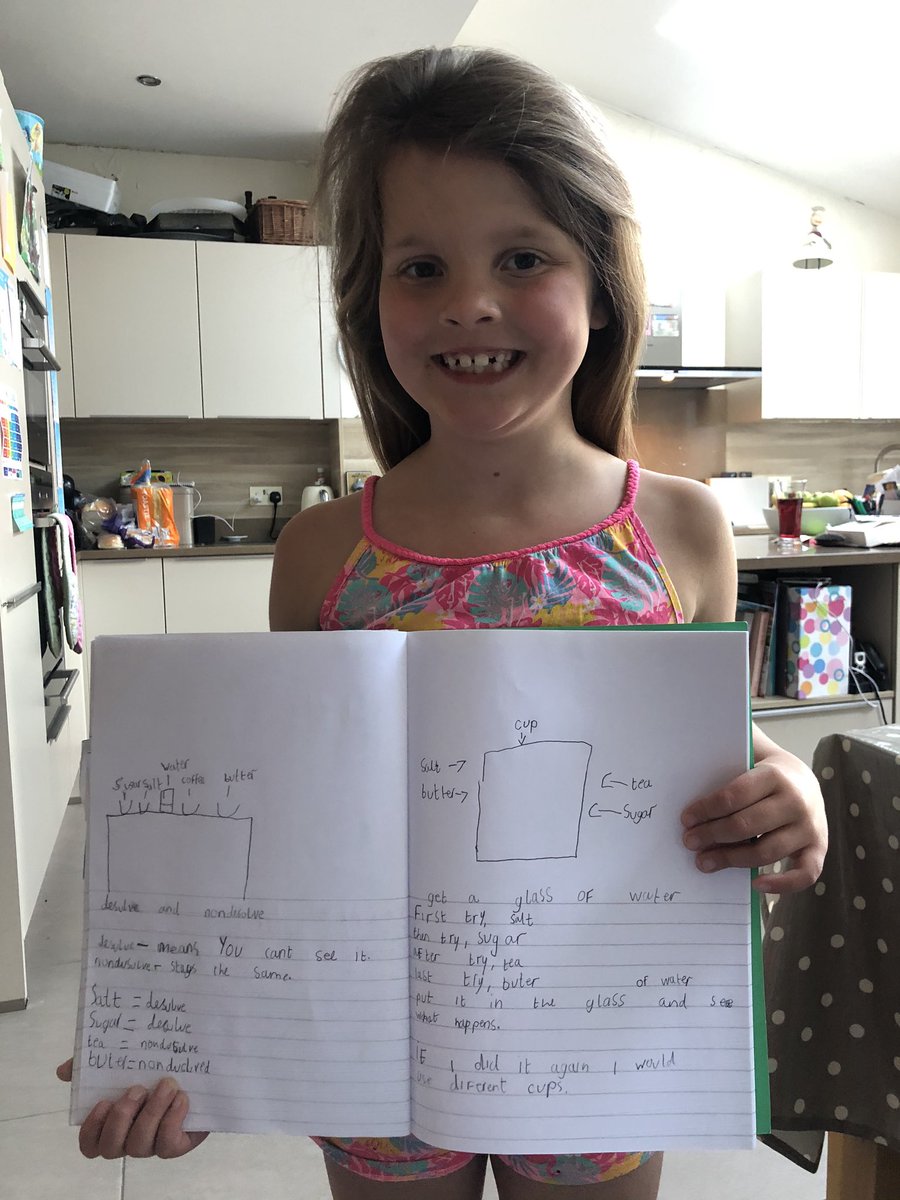 water
sugar salt coffee butter
desolve and nondisolve
desolve - means You cant see it.
nondesolve - stays the same.
Salt = desolve
Sugar = desolve
tea = nondesolve
butter = nondesolved
cup
Salt
butter
tea
Sugar
get a glass of water
First try, salt
then try, sugar
after try, tea
last try, buter of water
put it in the glass and see
what happens.
IF I did it again I would
use different cups.